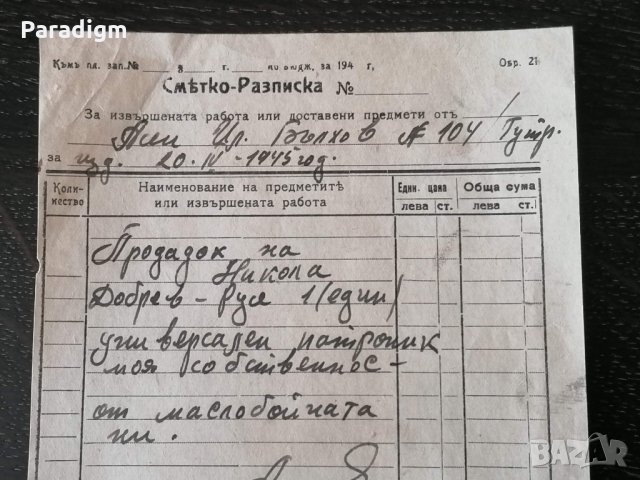 Paradigm
Къмъ пл. зап. № з г. по бюдж. за 194 г,
Обр. 21
Смѣтко-Разписка №
За извършената работа или доставени предмети отъ
Ил. № 104
за изд. 20. IV - 1945 год.
Коли- чество Наименование на предметитѣ или извършената работа Един. цена Обща сума
лева ст. лева ст.
Продадок на
Никола
Добрев - Русе 1 (един)
универсален патроник
моя собственнос-
от маслобойната
ни.
BAZAR